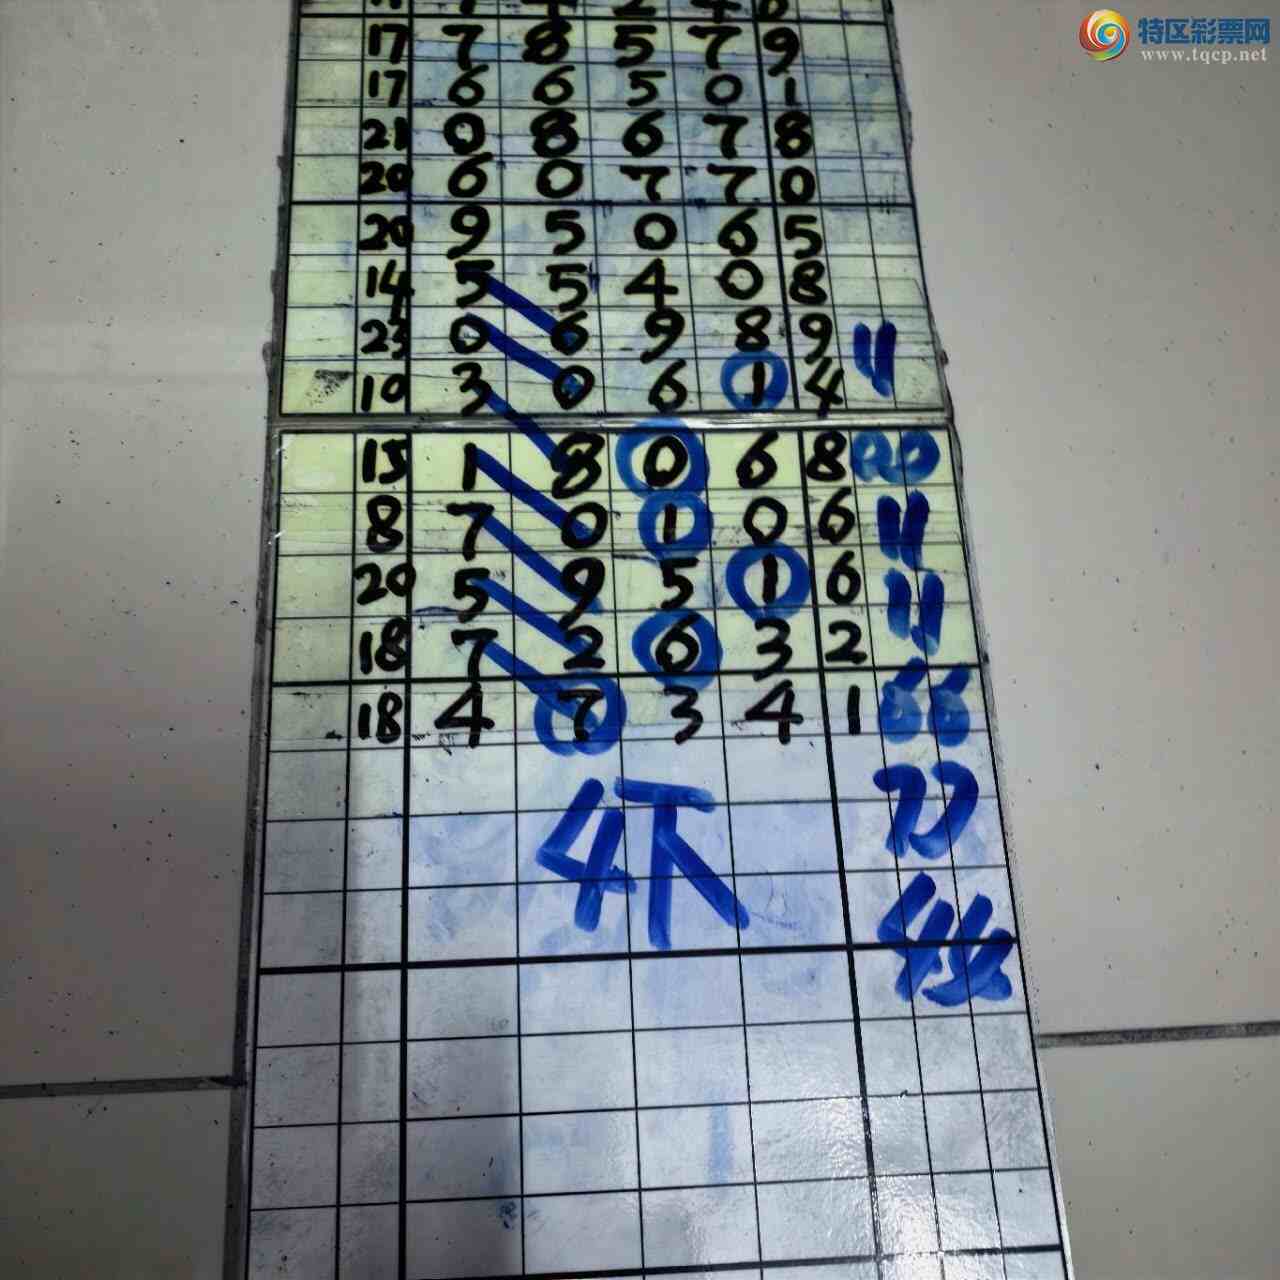 特区彩票网
www.tqcp.net
17 7 8 5 7 9
17 6 6 5 0 1
21 0 8 6 7 8
20 6 0 7 7 0
20 9 5 0 6 5
14 5 5 4 0 8
23 0 6 9 8 9
10 3 0 6 1 4 11
15 1 8 0 6 8 00
8 7 0 1 0 6 11
20 5 9 5 1 6 11
18 7 2 6 3 2
18 4 7 3 4 1 66
77
4下
44